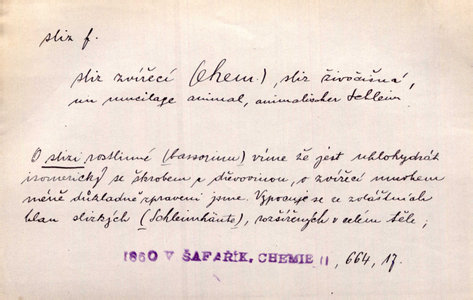 sliz f.
sliz zvířecí (chem.), sliz živočišná,
un mucilage animal, animalischer Schleim.
O slizi rostlinné (bassorinu) víme že jest uhlohydrát
isomerický se škrobem a dřevovinou, o zvířecí mnohem
méně důkladně zpraveni jsme. Vyposuje se ze zvláštních
blan slizkých (Schleimhäute), rozšířených v celém těle;
1860 V ŠAFAŘÍK, CHEMIE II, 664, 17.